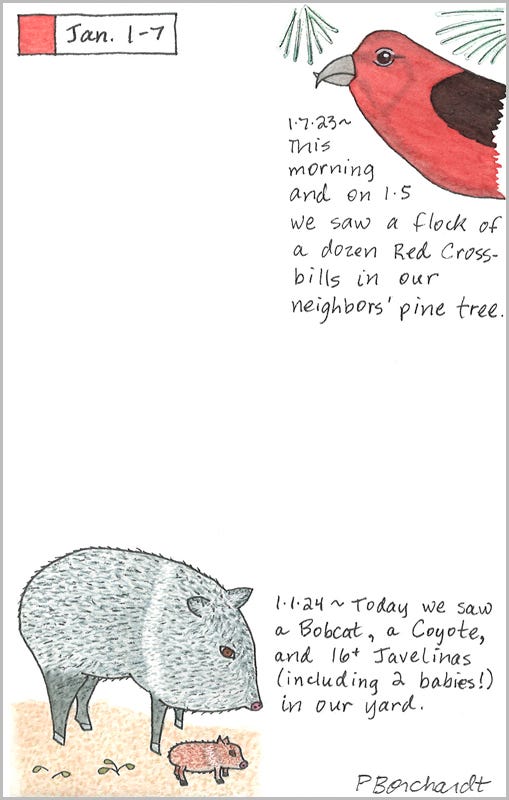 Jan. 1-7
1·7·23~
This
morning
and on 1·5
we saw a flock of
a dozen Red Cross-
bills in our
neighbors' pine tree.
1·1·24 ~ Today we saw
a Bobcat, a Coyote,
and 16+ Javelinas
(including 2 babies!)
in our yard.
P Borchardt